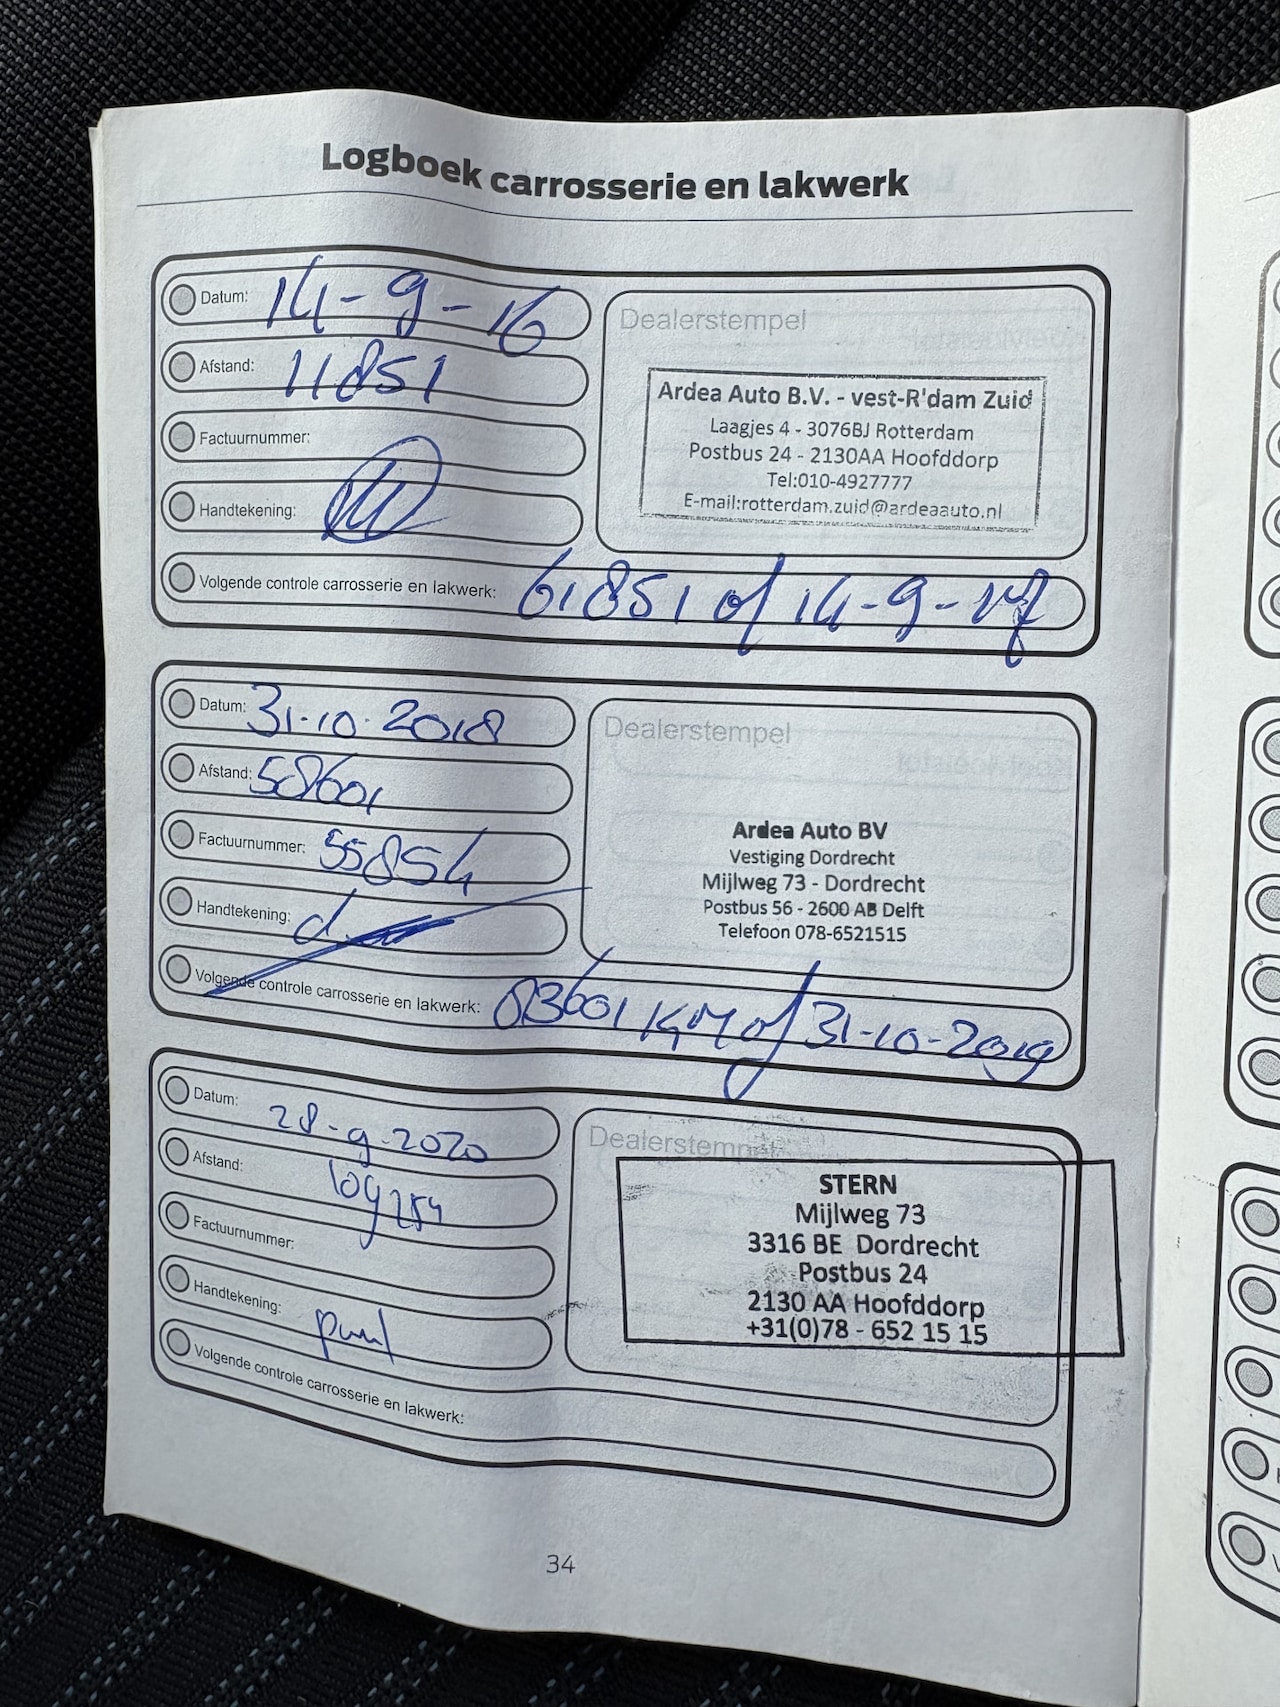 Logboek carrosserie en lakwerk
Datum: 14-9-16
Afstand: 11851
Factuurnummer:
Handtekening:
Dealerstempel
Ardea Auto B.V. - vest-R'dam Zuid
Laagjes 4 - 3076BJ Rotterdam
Postbus 24 - 2130AA Hoofddorp
Tel:010-4927777
E-mail:rotterdam.zuid@ardeaauto.nl
Volgende controle carrosserie en lakwerk: 61851 of 14-9-17
Datum: 31-10-2018
Afstand: 58601
Factuurnummer: 55854
Handtekening:
Dealerstempel
Ardea Auto BV
Vestiging Dordrecht
Mijlweg 73 - Dordrecht
Postbus 56 - 2600 AB Delft
Telefoon 078-6521515
Volgende controle carrosserie en lakwerk: 83601 KM of 31-10-2019
Datum: 28-9-2020
Afstand: 109254
Factuurnummer:
Handtekening:
Dealerstempel
STERN
Mijlweg 73
3316 BE Dordrecht
Postbus 24
2130 AA Hoofddorp
+31(0)78 - 652 15 15
Volgende controle carrosserie en lakwerk:
34